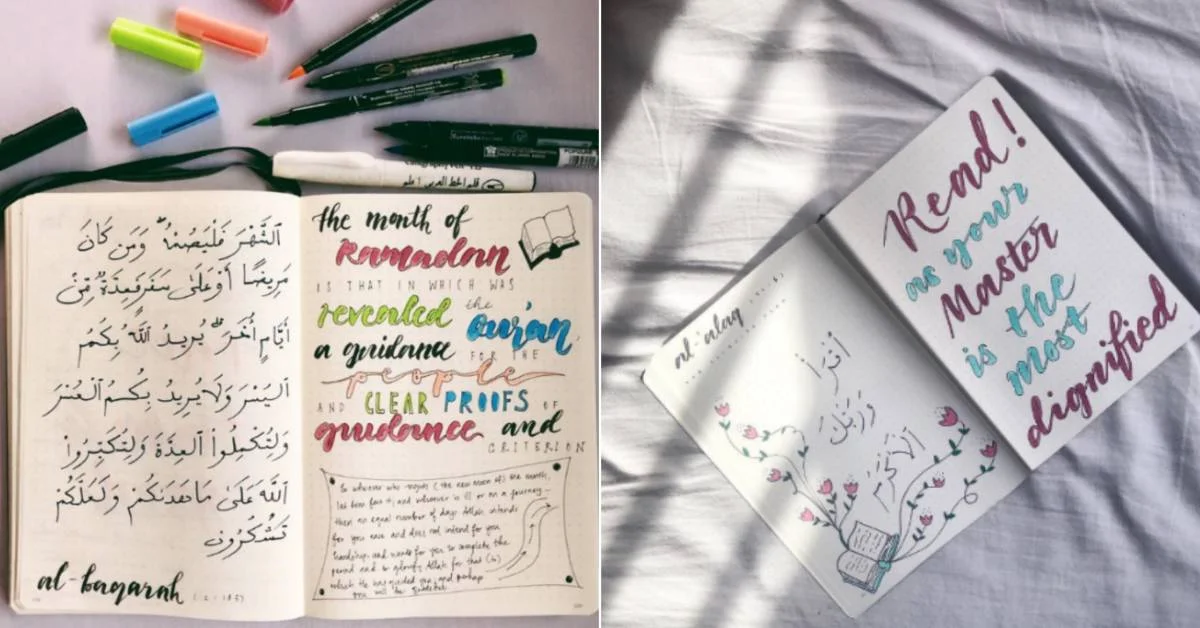 ٱلشَّهْرَ فَلْيَصُمْهُ ۖ وَمَن كَانَ
مَرِيضًا أَوْ عَلَىٰ سَفَرٍ فَعِدَّةٌ مِّنْ
أَيَّامٍ أُخَرَ ۗ يُرِيدُ ٱللَّهُ بِكُمُ
ٱلْيُسْرَ وَلَا يُرِيدُ بِكُمُ ٱلْعُسْرَ
وَلِتُكْمِلُوا۟ ٱلْعِدَّةَ وَلِتُكَبِّرُوا۟
ٱللَّهَ عَلَىٰ مَا هَدَىٰكُمْ وَلَعَلَّكُمْ
تَشْكُرُونَ
al-baqarah (2:185)
the month of
Ramadan
IS THAT IN WHICH WAS
revealed the Qur'an,
a guidance FOR THE
people
AND CLEAR PROOFS OF
guidance and
CRITERION
So whoever who sights (the new moon of) the month,
let him fast it; and whoever is ill or on a journey -
then an equal number of days. Allah intends
for you ease and does not intend for you
hardship and wants for you to complete the
period and to glorify Allah for that (to)
which He has guided you; and perhaps
you will be grateful.
al-'alaq
ٱقْرَأْ
وَرَبُّكَ
ٱلْأَكْرَمُ
Read!
as your
Master
is the
most
dignified